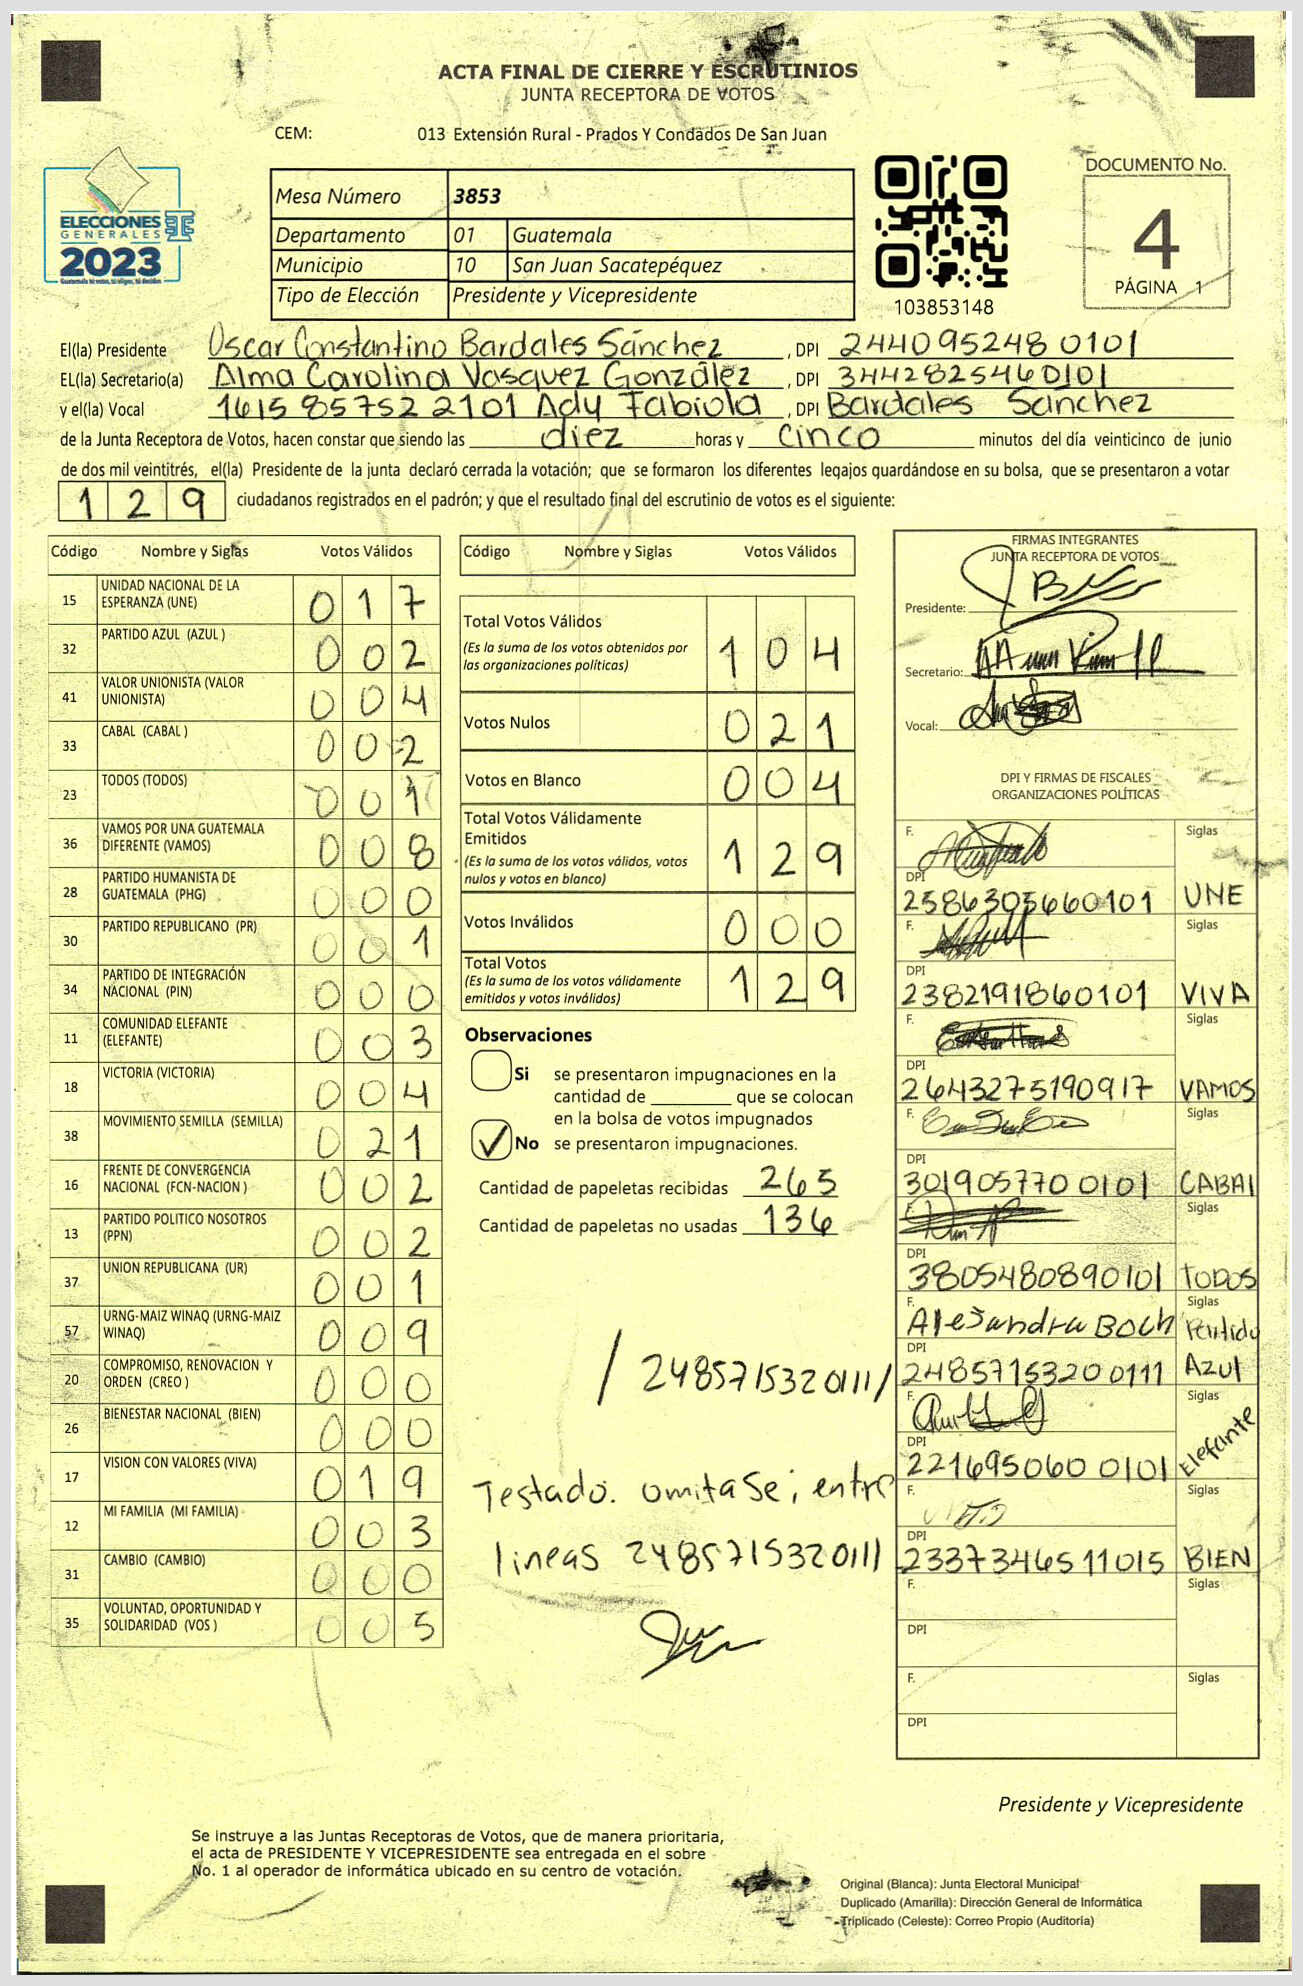 ACTA FINAL DE CIERRE Y ESCRUTINIOS
JUNTA RECEPTORA DE VOTOS
CEM: 013 Extensión Rural - Prados Y Condados De San Juan
ELECCIONES
GENERALES
2023
Mesa Número 3853
Departamento 01 Guatemala
Municipio 10 San Juan Sacatepéquez
Tipo de Elección Presidente y Vicepresidente
103853148
DOCUMENTO No.
4
PÁGINA 1
El(la) Presidente Oscar Constantino Bardales Sánchez , DPI 244095248 0101
EL(la) Secretario(a) Alma Carolina Vasquez González , DPI 3442825460101
y el(la) Vocal 1615 85752 2101 Ady Fabiola , DPI Bardales Sánchez
de la Junta Receptora de Votos, hacen constar que siendo las diez horas y cinco minutos del día veinticinco de junio
de dos mil veintitrés, el(la) Presidente de la junta declaró cerrada la votación; que se formaron los diferentes legajos guardándose en su bolsa, que se presentaron a votar
129 ciudadanos registrados en el padrón; y que el resultado final del escrutinio de votos es el siguiente:
Código Nombre y Siglas Votos Válidos
15 UNIDAD NACIONAL DE LA ESPERANZA (UNE) 017
32 PARTIDO AZUL (AZUL ) 002
41 VALOR UNIONISTA (VALOR UNIONISTA) 004
33 CABAL (CABAL ) 002
23 TODOS (TODOS) 001
36 VAMOS POR UNA GUATEMALA DIFERENTE (VAMOS) 008
28 PARTIDO HUMANISTA DE GUATEMALA (PHG) 000
30 PARTIDO REPUBLICANO (PR) 001
34 PARTIDO DE INTEGRACIÓN NACIONAL (PIN) 000
11 COMUNIDAD ELEFANTE (ELEFANTE) 003
18 VICTORIA (VICTORIA) 004
38 MOVIMIENTO SEMILLA (SEMILLA) 021
16 FRENTE DE CONVERGENCIA NACIONAL (FCN-NACION ) 002
13 PARTIDO POLITICO NOSOTROS (PPN) 002
37 UNION REPUBLICANA (UR) 001
57 URNG-MAIZ WINAQ (URNG-MAIZ WINAQ) 009
20 COMPROMISO, RENOVACION Y ORDEN (CREO ) 000
26 BIENESTAR NACIONAL (BIEN) 000
17 VISION CON VALORES (VIVA) 019
12 MI FAMILIA (MI FAMILIA) 003
31 CAMBIO (CAMBIO) 000
35 VOLUNTAD, OPORTUNIDAD Y SOLIDARIDAD (VOS ) 005
Código Nombre y Siglas Votos Válidos
Total Votos Válidos 104
(Es la suma de los votos obtenidos por
las organizaciones políticas)
Votos Nulos 021
Votos en Blanco 004
Total Votos Válidamente
Emitidos 129
(Es la suma de los votos válidos, votos
nulos y votos en blanco)
Votos Inválidos 000
Total Votos 129
(Es la suma de los votos válidamente
emitidos y votos inválidos)
Observaciones
Si se presentaron impugnaciones en la
cantidad de ________ que se colocan
en la bolsa de votos impugnados
No se presentaron impugnaciones.
Cantidad de papeletas recibidas 265
Cantidad de papeletas no usadas 136
/ 2485715320111/
Testado. omitase; entre
lineas 2485715320111
FIRMAS INTEGRANTES
JUNTA RECEPTORA DE VOTOS
Presidente:
Secretario:
Vocal:
DPI Y FIRMAS DE FISCALES
ORGANIZACIONES POLÍTICAS
F. Siglas
DPI 2586305660101 UNE
F. Siglas
DPI 2382191860101 VIVA
F. Siglas
DPI 2643275190917 VAMOS
F. Siglas
DPI 301905770 0101 CABAL
F. Siglas
DPI 3805480890101 TODOS
F. Alejandra Boch Siglas Partido
DPI 24857153200111 Azul
F. Siglas
DPI 221695060 0101 Elefante
F. Siglas
DPI 2337346511015 BIEN
F. Siglas
DPI
F. Siglas
DPI
Presidente y Vicepresidente
Se instruye a las Juntas Receptoras de Votos, que de manera prioritaria,
el acta de PRESIDENTE Y VICEPRESIDENTE sea entregada en el sobre
No. 1 al operador de informática ubicado en su centro de votación.
Original (Blanca): Junta Electoral Municipal
Duplicado (Amarilla): Dirección General de Informática
Triplicado (Celeste): Correo Propio (Auditoría)